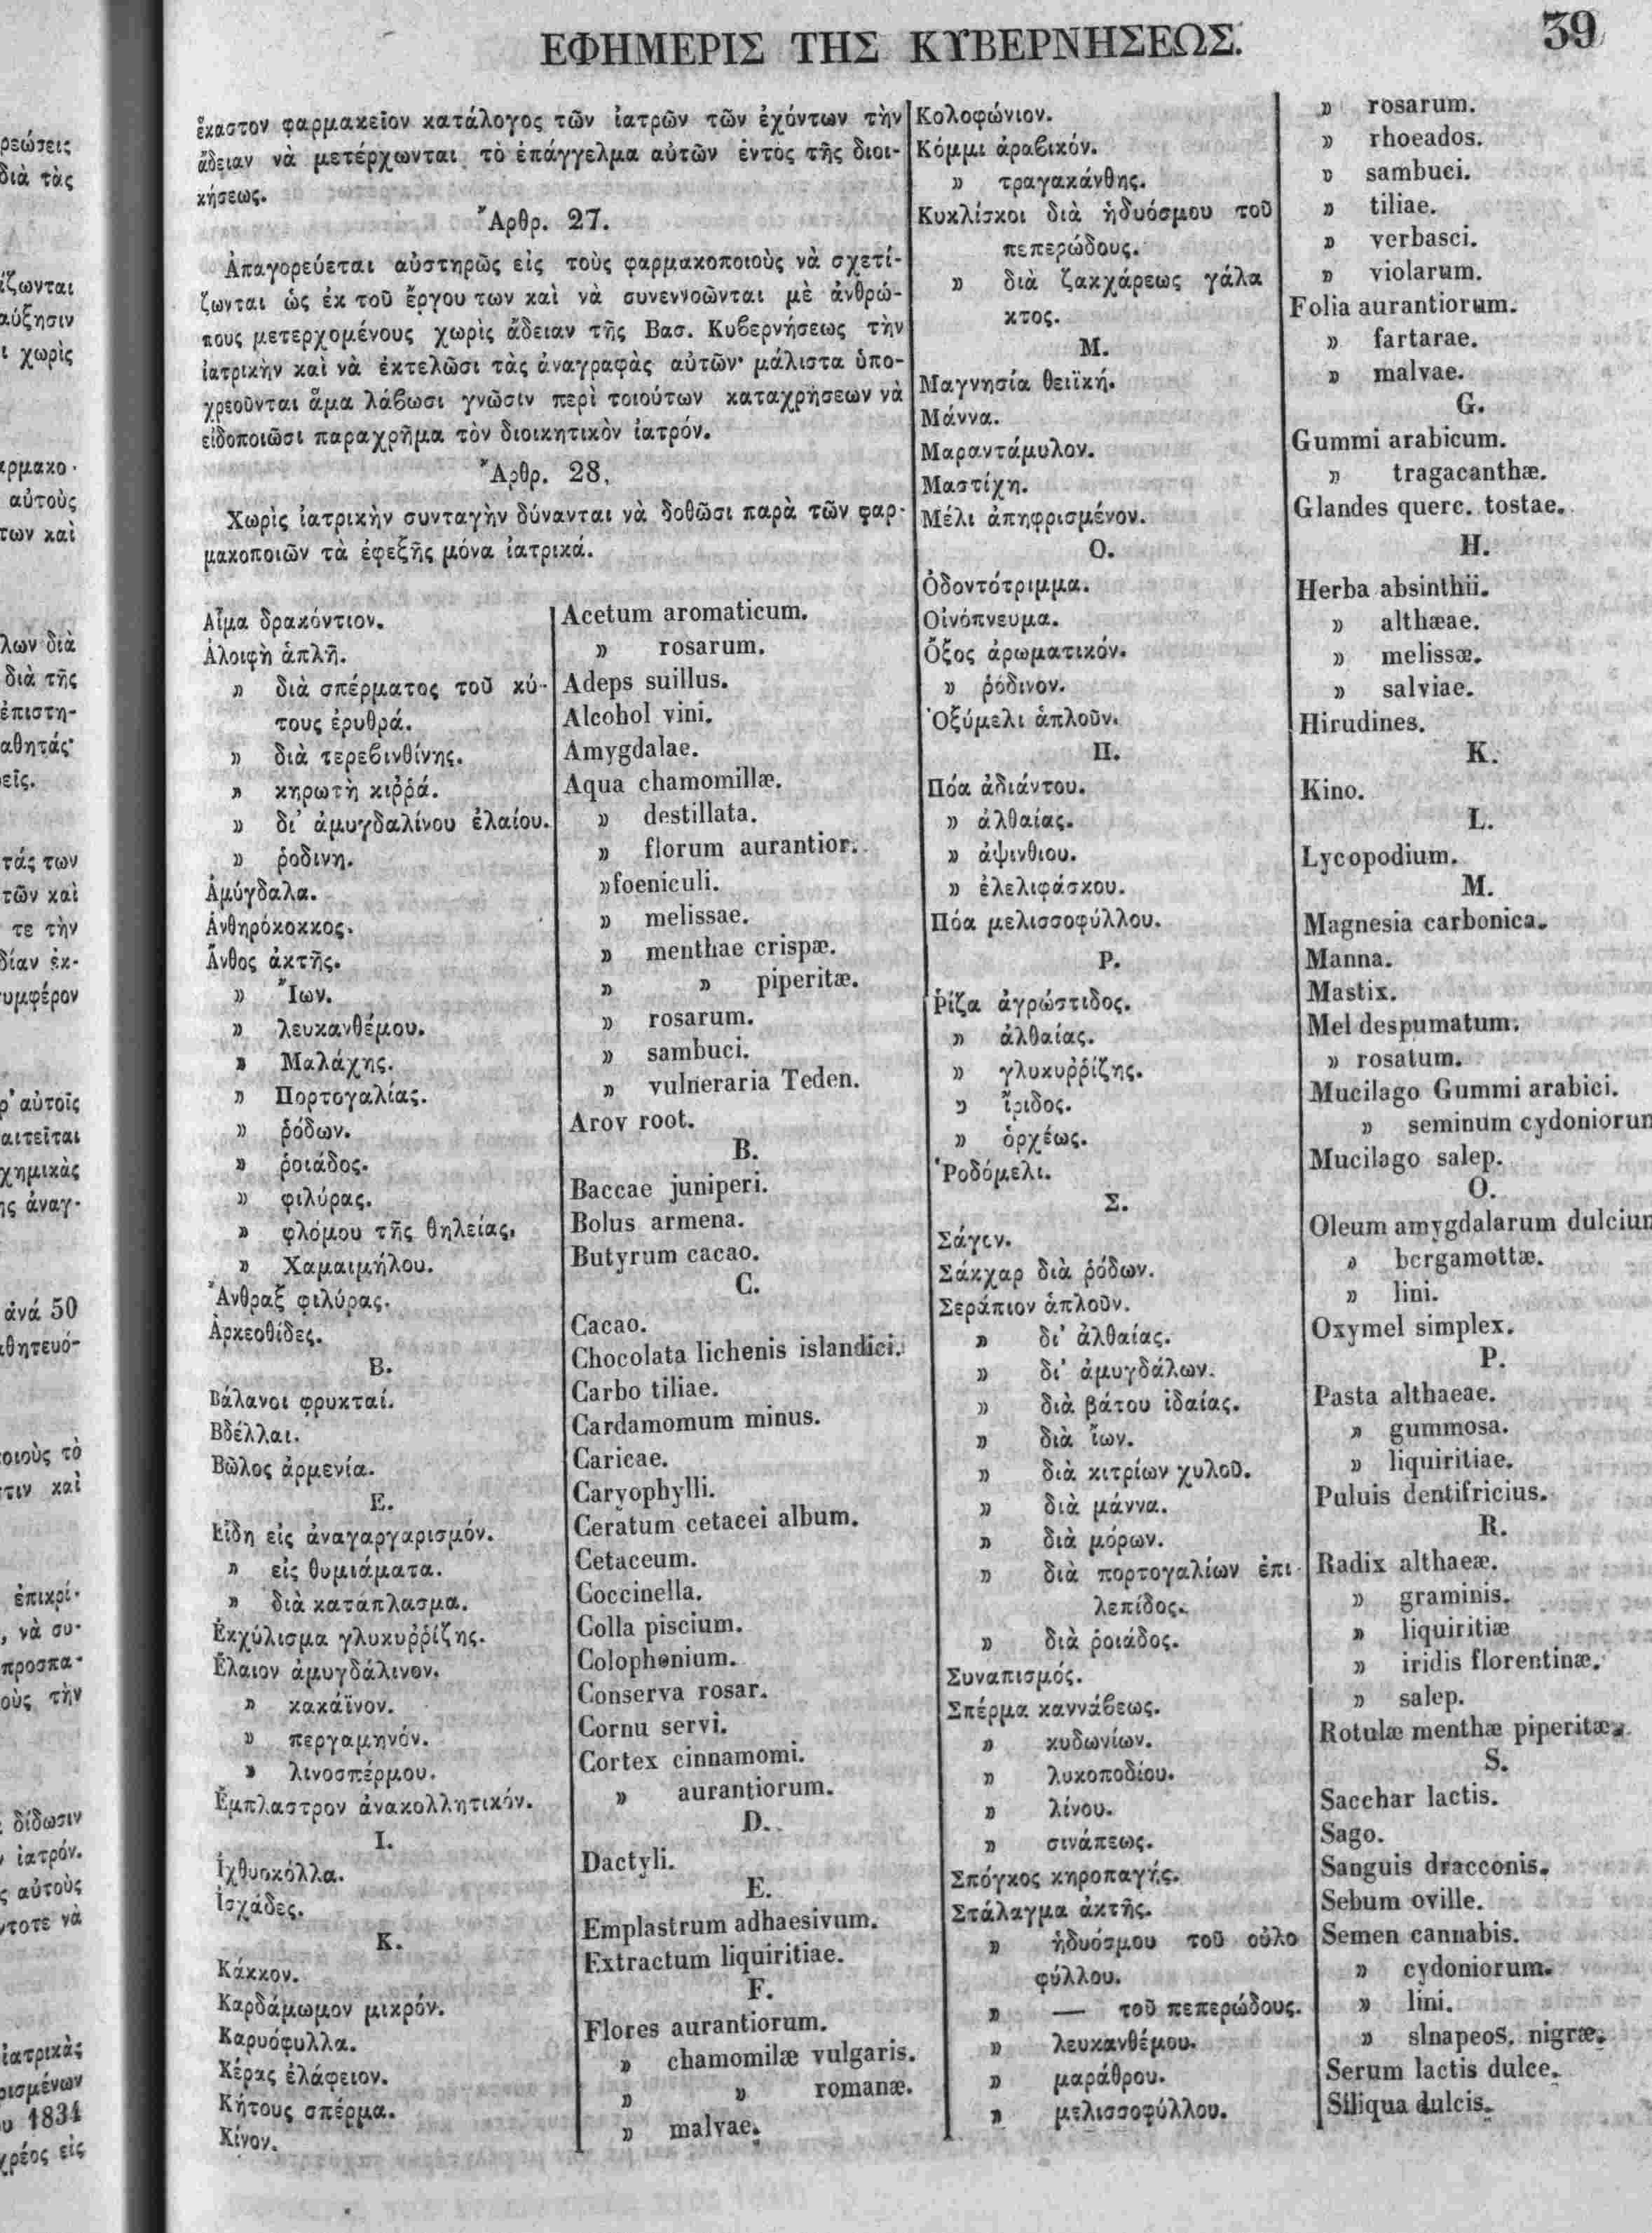 ΕΦΗΜΕΡΙΣ ΤΗΣ ΚΥΒΕΡΝΗΣΕΩΣ.
39
ἕκαστον φαρμακεῖον κατάλογος τῶν ἰατρῶν τῶν ἐχόντων τὴν
ἄδειαν νὰ μετέρχωνται τὸ ἐπάγγελμα αὐτῶν ἐντὸς τῆς διοι-
κήσεως.
Ἄρθρ. 27.
Ἀπαγορεύεται αὐστηρῶς εἰς τοὺς φαρμακοποιοὺς νὰ σχετί-
ζωνται ὡς ἐκ τοῦ ἔργου των καὶ νὰ συνεννοῶνται μὲ ἀνθρώ-
πους μετερχομένους χωρὶς ἄδειαν τῆς Βασ. Κυβερνήσεως τὴν
ἰατρικὴν καὶ νὰ ἐκτελῶσι τὰς ἀναγραφὰς αὐτῶν· μάλιστα ὑπο-
χρεοῦνται ἅμα λάβωσι γνῶσιν περὶ τοιούτων καταχρήσεων νὰ
εἰδοποιῶσι παραχρῆμα τὸν διοικητικὸν ἰατρόν.
Ἄρθρ. 28.
Χωρὶς ἰατρικὴν συνταγὴν δύνανται νὰ δοθῶσι παρὰ τῶν φαρ-
μακοποιῶν τὰ ἐφεξῆς μόνα ἰατρικά.
Αἷμα δρακόντιον.
Ἀλοιφὴ ἁπλῆ.
» διὰ σπέρματος τοῦ κύ-
τους ἐρυθρά.
» διὰ τερεβινθίνης.
» κηρωτὴ κιῤῥά.
» δι' ἀμυγδαλίνου ἐλαίου.
» ῥοδινη.
Ἀμύγδαλα.
Ἀνθηρόκοκκος.
Ἄνθος ἀκτῆς.
» Ἴων.
» λευκανθέμου.
» Μαλάχης.
» Πορτογαλίας.
» ῥόδων.
» ῥοιάδος.
» φιλύρας.
» φλόμου τῆς θηλείας.
» Χαμαιμήλου.
Ἄνθραξ φιλύρας.
Ἀρκεοθίδες.
Β.
Βάλανοι φρυκταί.
Βδέλλαι.
Βῶλος ἀρμενία.
Ε.
Εἴδη εἰς ἀναγαργαρισμόν.
» εἰς θυμιάματα.
» διὰ κατάπλασμα.
Ἐκχύλισμα γλυκυῤῥίζης.
Ἔλαιον ἀμυγδάλινον.
» κακάϊνον.
» περγαμηνόν.
» λινοσπέρμου.
Ἔμπλαστρον ἀνακολλητικόν.
Ι.
Ἰχθυοκόλλα.
Ἰσχάδες.
Κ.
Κάκκον.
Καρδάμωμον μικρόν.
Καρυόφυλλα.
Κέρας ἐλάφειον.
Κήτους σπέρμα.
Κίνον.
Acetum aromaticum.
» rosarum.
Adeps suillus.
Alcohol vini.
Amygdalae.
Aqua chamomillæ.
» destillata.
» florum aurantior.
» foeniculi.
» melissae.
» menthae crispæ.
» » piperitæ.
» rosarum.
» sambuci.
» vulneraria Teden.
Arov root.
B.
Baccae juniperi.
Bolus armena.
Butyrum cacao.
C.
Cacao.
Chocolata lichenis islandici.
Carbo tiliae.
Cardamomum minus.
Caricae.
Caryophylli.
Ceratum cetacei album.
Cetaceum.
Coccinella.
Colla piscium.
Colophonium.
Conserva rosar.
Cornu servi.
Cortex cinnamomi.
» aurantiorum.
D.
Dactyli.
E.
Emplastrum adhaesivum.
Extractum liquiritiae.
F.
Flores aurantiorum.
» chamomilæ vulgaris.
» » romanæ.
» malvae.
Κολοφώνιον.
Κόμμι ἀραβικόν.
» τραγακάνθης.
Κυκλίσκοι διὰ ἡδυόσμου τοῦ
πεπερώδους.
» διὰ ζακχάρεως γάλα
κτος.
Μ.
Μαγνησία θειϊκή.
Μάννα.
Μαραντάμυλον.
Μαστίχη.
Μέλι ἀπηφρισμένον.
Ο.
Ὀδοντότριμμα.
Οἰνόπνευμα.
Ὄξος ἀρωματικόν.
» ῥόδινον.
Ὀξύμελι ἁπλοῦν.
Π.
Πόα ἀδιάντου.
» ἀλθαίας.
» ἀψινθιου.
» ἐλελιφάσκου.
Πόα μελισσοφύλλου.
Ρ.
Ῥίζα ἀγρώστιδος.
» ἀλθαίας.
» γλυκυῤῥίζης.
» ἴριδος.
» ὀρχέως.
Ῥοδόμελι.
Σ.
Σάγον.
Σάκχαρ διὰ ῥόδων.
Σεράπιον ἁπλοῦν.
» δι' ἀλθαίας.
» δι' ἀμυγδάλων.
» διὰ βάτου ἰδαίας.
» διὰ ἴων.
» διὰ κιτρίων χυλοῦ.
» διὰ μάννα.
» διὰ μόρων.
» διὰ πορτογαλίων ἐπι-
λεπίδος.
» διὰ ῥοιάδος.
Συναπισμός.
Σπέρμα καννάβεως.
» κυδωνίων.
» λυκοποδίου.
» λίνου.
» σινάπεως.
Σπόγκος κηροπαγής.
Στάλαγμα ἀκτῆς.
» ἡδυόσμου τοῦ οὐλο
φύλλου.
» — τοῦ πεπερώδους.
» λευκανθέμου.
» μαράθρου.
» μελισσοφύλλου.
» rosarum.
» rhoeados.
» sambuci.
» tiliae.
» verbasci.
» violarum.
Folia aurantiorum.
» fartarae.
» malvae.
G.
Gummi arabicum.
» tragacanthæ.
Glandes querc. tostae.
H.
Herba absinthii.
» althæae.
» melissæ.
» salviae.
Hirudines.
K.
Kino.
L.
Lycopodium.
M.
Magnesia carbonica.
Manna.
Mastix.
Mel despumatum.
» rosatum.
Mucilago Gummi arabici.
» seminum cydoniorum
Mucilago salep.
O.
Oleum amygdalarum dulcium
» bergamottæ.
» lini.
Oxymel simplex.
P.
Pasta althaeae.
» gummosa.
» liquiritiae.
Puluis dentifricius.
R.
Radix althaeæ.
» graminis.
» liquiritiæ
» iridis florentinæ.
» salep.
Rotulæ menthæ piperitæ.
S.
Sacchar lactis.
Sago.
Sanguis dracconis.
Sebum oville.
Semen cannabis.
» cydoniorum.
» lini.
» slnapeos. nigræ.
Serum lactis dulce.
Siliqua dulcis.